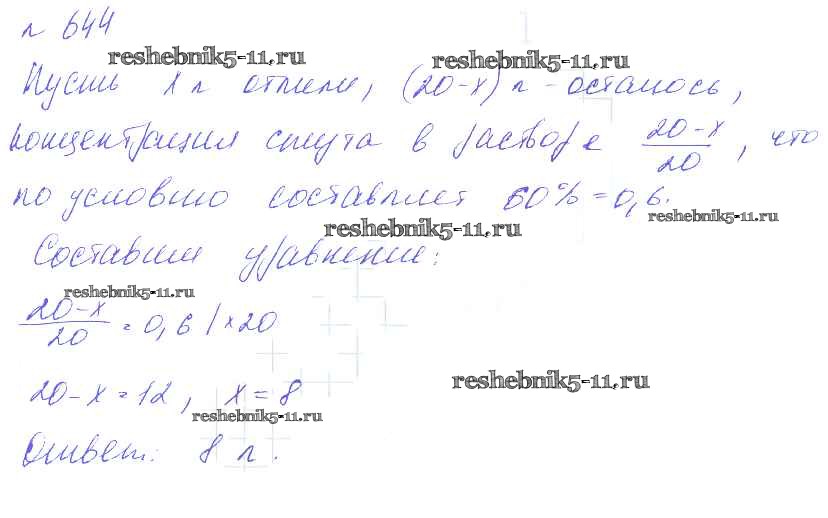 n 644
reshebnik5-11.ru reshebnik5-11.ru
Пусть x л отлили, (20-x) л - осталось,
концентрация спирта в растворе (20-x)/20, что
по условию составляет 60% = 0,6.
reshebnik5-11.ru reshebnik5-11.ru
Составим уравнение:
reshebnik5-11.ru
(20-x)/20 = 0,6 | × 20
reshebnik5-11.ru
20-x = 12, x = 8
reshebnik5-11.ru
Ответ: 8 л.